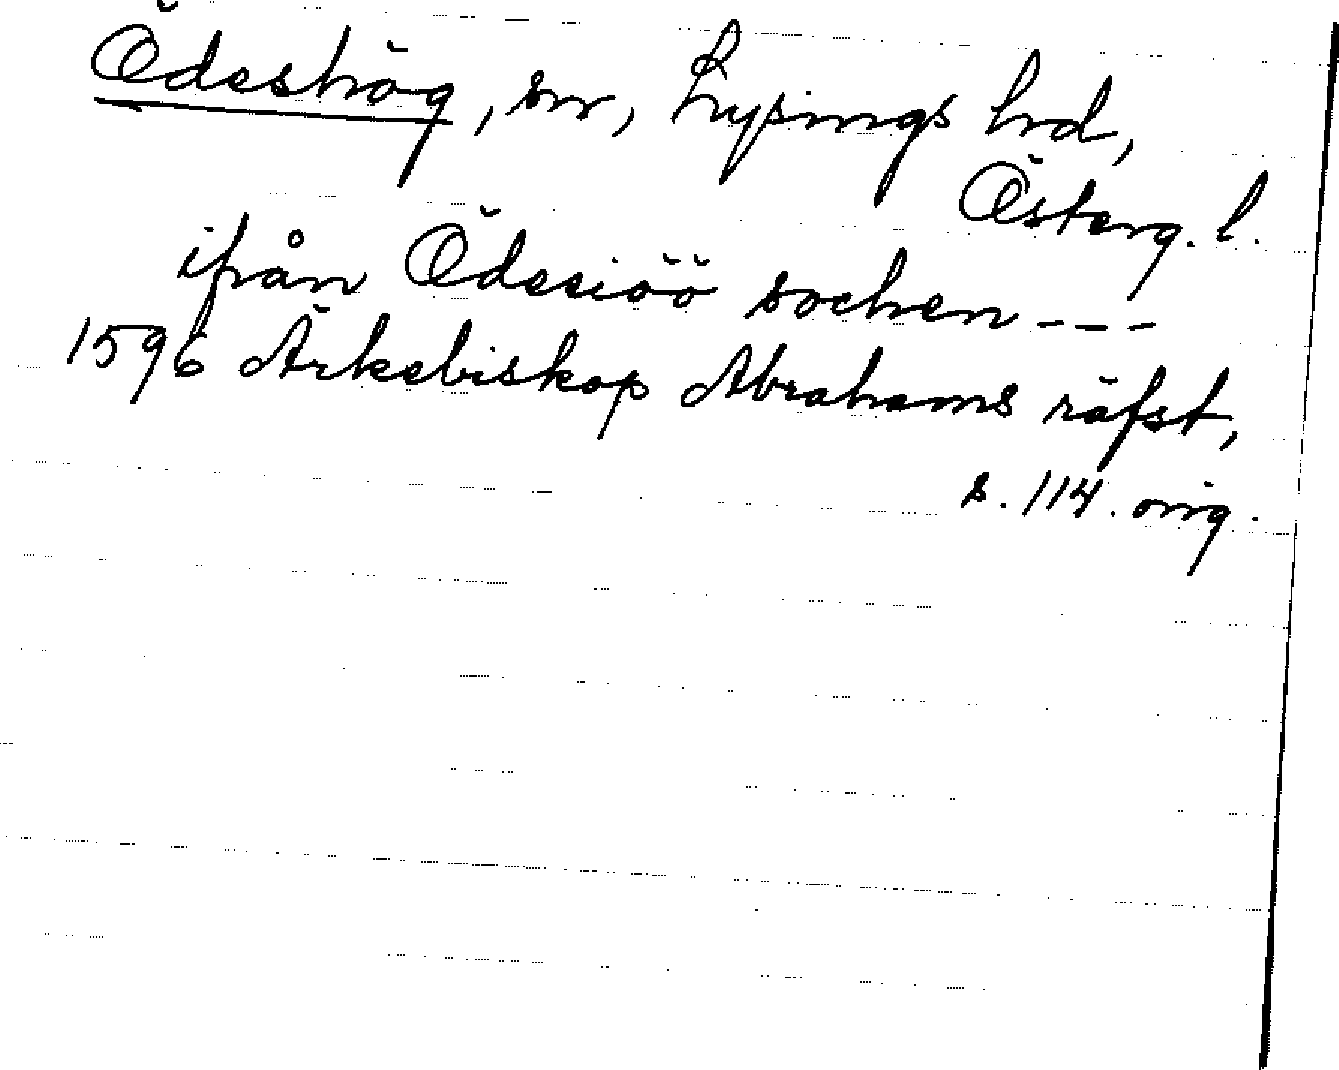 Ödeshög, sn, Lysings hrd,
Österg. l.
ifrån Ödesiöö sochen ---
1596 Ärkebiskop Abrahams räfst,
s. 114. orig.